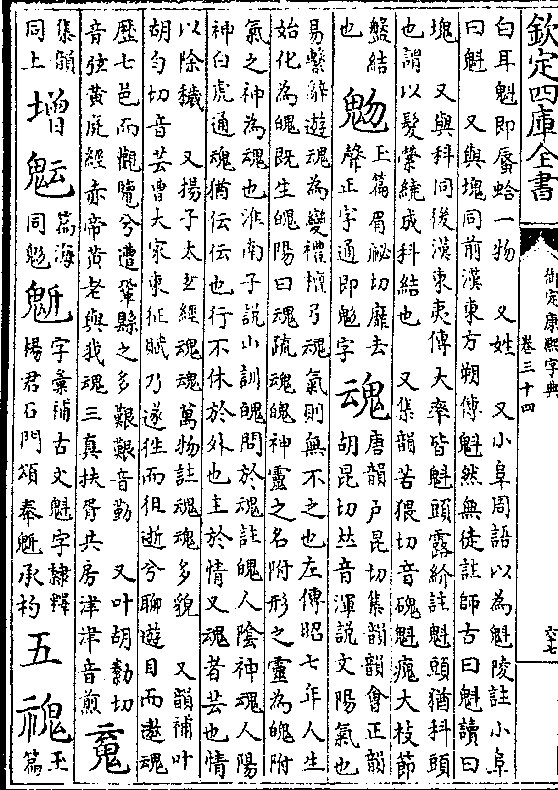 欽定四庫全書
御定康熙字典
卷三十四
六七
白耳魁即蜃蛤一物 又姓 又小阜周語以為魁陵註小阜
曰魁 又與塊同前漢東方朔傳魁然無徒註師古曰魁讀曰
塊 又與科同後漢東夷傳大率皆魁頭露紒註魁頭猶科頭
也謂以髮縈繞成科結也 又集韻苦猥切音磈魁瘣大枝節
盤結也
䰨 上篇眉祕切靡去聲正字通即鬽字
魂 唐韻戶昆切集韻韻會正韻胡昆切𠀤音渾説文陽氣也
易繫辭遊魂為變禮檀弓魂氣則無不之也左傳昭七年人生
始化為魄既生魄陽曰魂疏魂魄神靈之名附形之靈為魄附
氣之神為魂也淮南子説山訓魄問於魂註魄人隂神魂人陽
神白虎通魂猶伝伝也行不休於外也主於情又魂者芸也情
以除穢 又揚子太𤣥經魂魂萬物註魂魂多貌 又韻補叶
胡勻切音芸曹大家東征賦乃遂徃而徂逝兮聊遊目而遨魂
歴七邑而觀覽兮遭鞏縣之多艱艱音勤 又叶胡勬切
音弦黄庭經赤帝黄老與我魂三真扶胥共房津津音煎
䰟 集韻同上
增䰢 篇海同鬽
魁 字彙補古文魁字隸釋楊君石門頌奉魁承杓
五䰩 玉篇